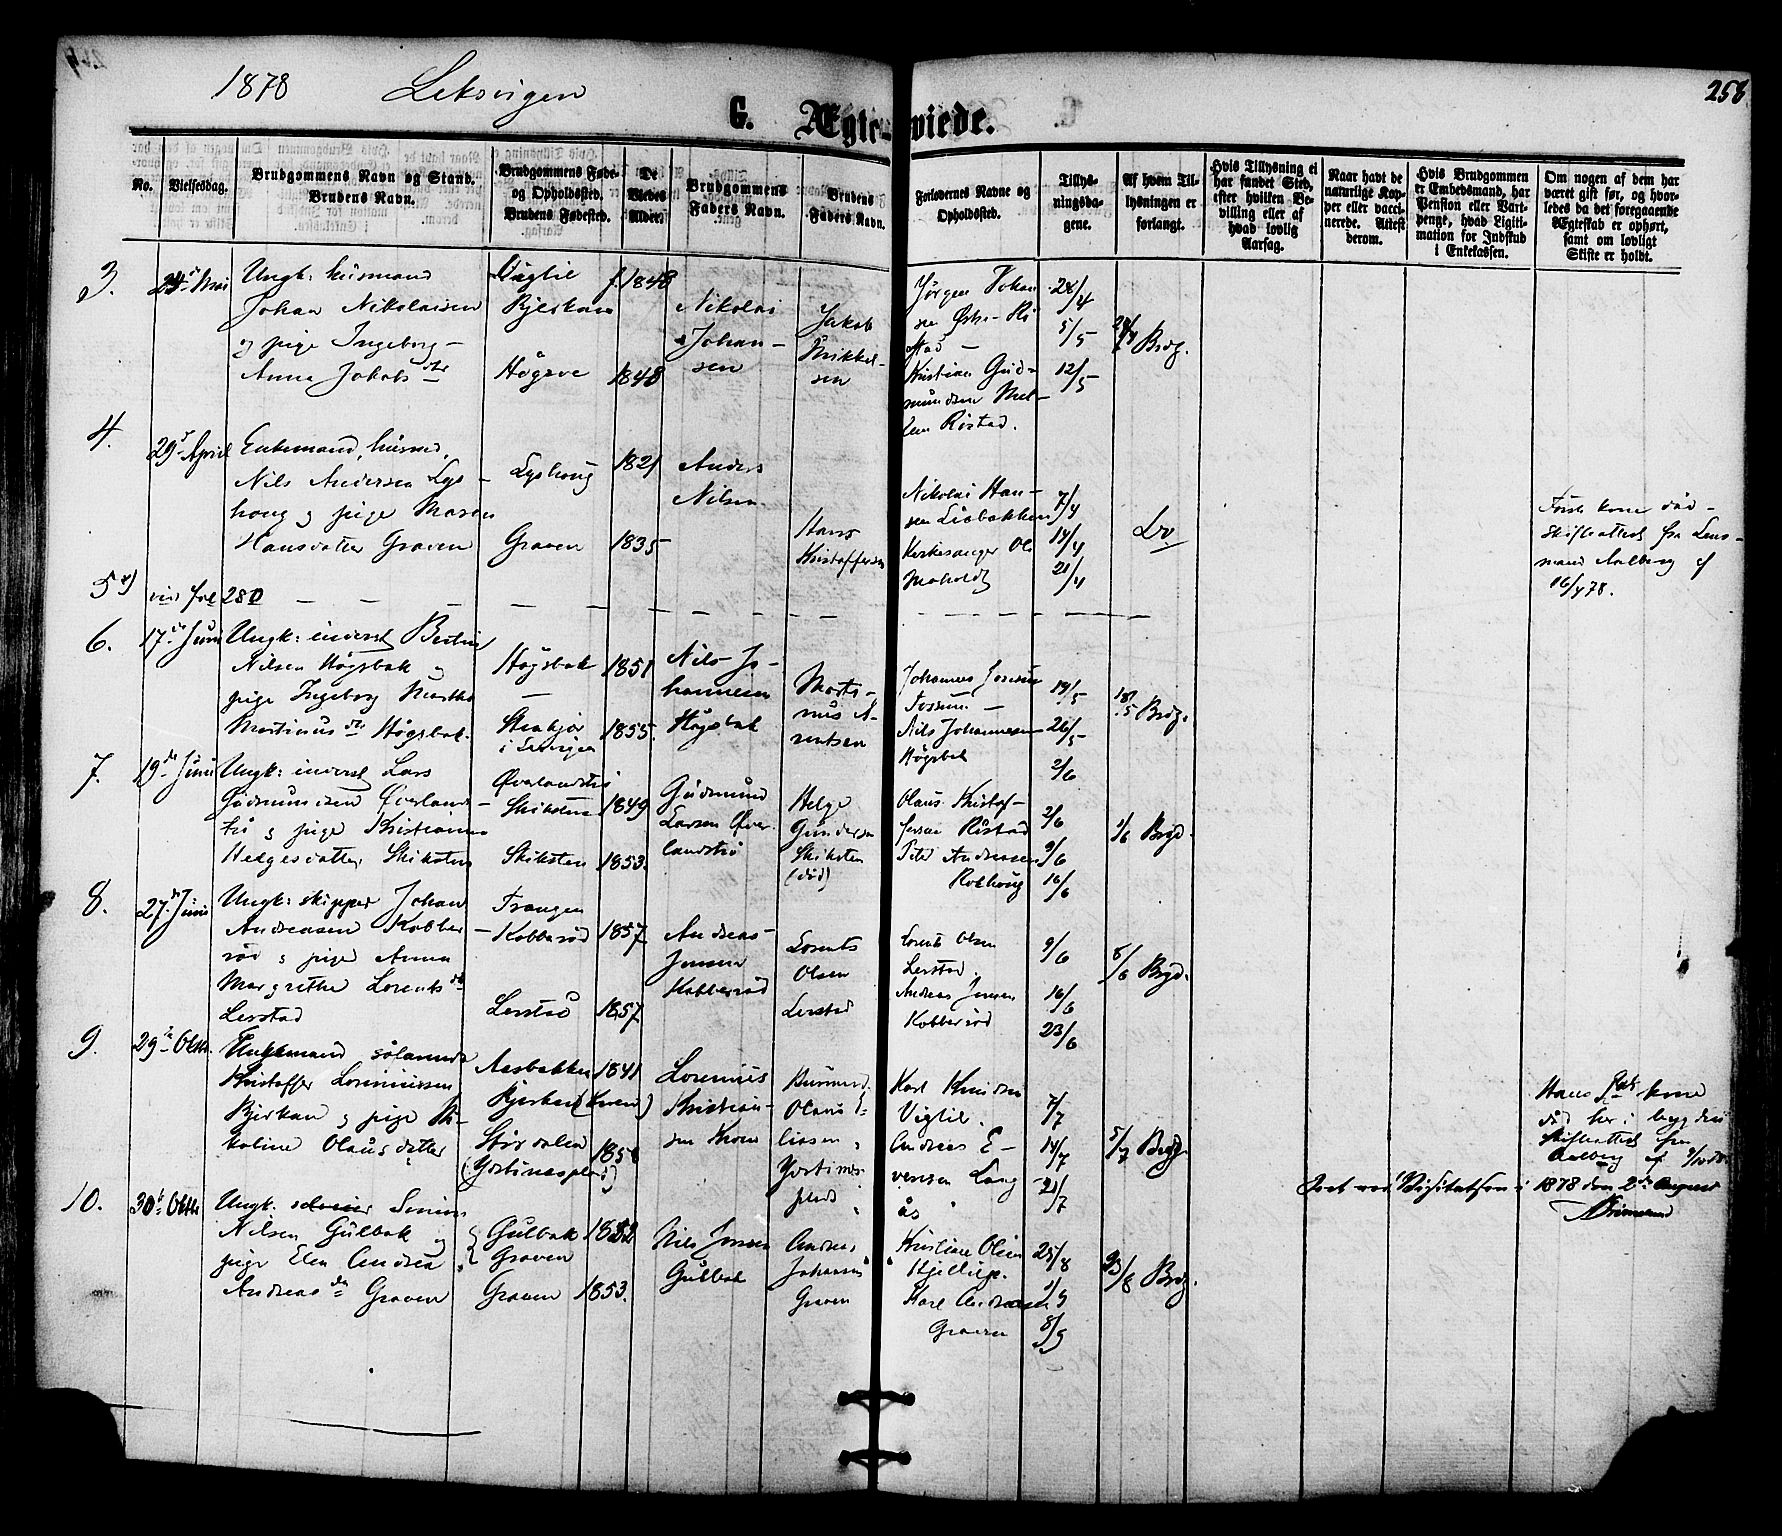 1878 Leksvigen
258
G. Ægte-viede.
No.
Vielsesdag.
Brudgommens Navn og Stand.
Brudens Navn.
Brudgommens Føde-
og Opholdssted.
Brudens Fødested.
De
Viedes
Alder.
Brudgommens
Faders Navn.
Brudens
Faders Navn.
Forlovernes Navne og
Opholdssted.
Tillys-
ningsda-
gene.
Af hvem Til-
lysningen er
forlangt.
Hvis Tillysning ei
har fundet Sted,
efter hvilken Be-
villing eller af
hvad lovlig
Aarsag.
Naar havt de
naturlige Kop-
per eller vacci-
nerede. Attest
derom.
Hvis Brudgommen
er Embedsmand, har
Pension eller Vart-
penge, hvad Ligiti-
mation for Indskud
i Enkekassen.
Om nogen af dem har
været gift før, og hvor-
ledes da det foregaaende
Ægteskab er ophørt,
samt om lovligt
Skifte er holdt.
3.
Mai
Ungk: husmand
Johan Nikolaisen
og pige Ingeborg-
Anna Jakobsdtr
Vigtil
Bjerkan
Høgsve
f. 1848
1848
Nikolai
Johan-
sen
Jakob
Mikkel-
sen
Jørgen Johan
sen Østre-Rø
stad -
Kristian Gud-
mundsen Mel-
lem Røstad.
28/4
5/5
12/5
Brdg.
4.
29 April
Enkemand, husmd,
Nils Andersen Lys-
houg og pige Maren
Hansdatter Graven
Lyshoug
Graven
1821
1835
Anders
Nilsen
Hans
Kristoffersen
Nikolai Han-
sen Liabakken
Kirkesanger Ole
Moholdt
7/4
14/4
21/4
Do
Første kone død -
skifteattest fra Lens-
mand Aalberg af
16/4 78.
5)
vid fol 280 - - - - - - - -
6.
17de Juni
Ungk: inderst
Nilsen Høgsbak og
pige Ingeborg Martha
Martinusdtr Høgsbak.
Høgsbak
-
Stenkjær
i Leksvigen
1851
1855.
Nils Jo-
hannesen
Høgsbak
Marti-
nus A-
rentsen
Johannes Jensen
Fossum -
Nils Johannesen
Høgsbak
19/5
26/5
2/6
18/5 Brdg.
7.
19de Juni
Ungk: inderst Lars
Gudmundsen Øverlands-
trø og pige Kristianna
Helgesdatter Skiksten
Øverlandstrø
Skiksten
Skiksten
1849
1853.
Gudmund
Larsen Øver
landstrø
Helge
Gundersen
Skiksten
(død)
Olaus Kristof-
fersen Røstad
Peter Andreasen
Rokhoug
2/6
9/6
16/6
1/6 Brgd.
8.
27de Juni
Ungk: skipper Johan
Andreasen Kobber
rød og pige Anna
Margrethe Lorentsdtr
Lerstad
Trangen
-Kobberrød
Lerstad
1857
1857
Andreas-
Jensen
Kobberrød
Lorents
Olsen
Lerstad
Lorents Olsen
Lerstad.
Andreas Jensen
Kobberrød
9/6
16/6
23/6
8/6 Brgd.
9.
29de Oktbr.
Enkemand
Kristoffer Lorentsen
Bjerkan og pige Ni-
koline Olausdatter
Aasbakken
Bjerkan
Størdalen
1841
1858
Lorentius
Kristian-
sen
Olaus E-
liasen
plads
Karl Knudsen
Vigtil.
Andreas E-
vensen Lang
ås
7/7
14/7
21/7
5/7 Brdg.
Hans første kone
død her i bygden
skifteattest fra
Aalberg af
Seet ved Visitatsen i 1878 den 2de August
10.
30te Oktbr
Ungk:
Nilsen Gulbak og
pige Elen Andrea
Andreasdtr Graven
Gulbak
Graven
Graven
1852
1853.
Nils Jensen
Gulbak
Andreas
Johansen
Graven
Kristian Olsen
Karl Andreasen
Graven
25/8
1/9
8/9
23/8 Brdg.